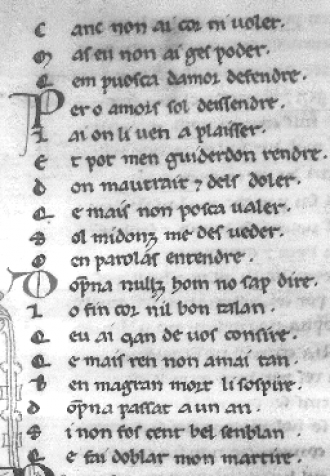 C anc non ai cor ni uoler.
M as eu non ai ges poder.
Q em puosca damor defendre.
P er o amors sol deissendre.
L ai on li uen a plaisser.
E t pot men guiderdon rendre.
D on mautrait ⁊ dels doler.
Q e mais non posca ualer.
S ol midonz me des ueder.
O en parolas entendre.
D opna nullz hom no sap dire.
L o fin cor nil bon talan.
Q eu ai qan de uos consire.
Q e mais ren non amai tan.
B en magran mort li sospire.
D opna passat a un an.
S i non fos cent bel senblan
Q e fai doblar mon martire.